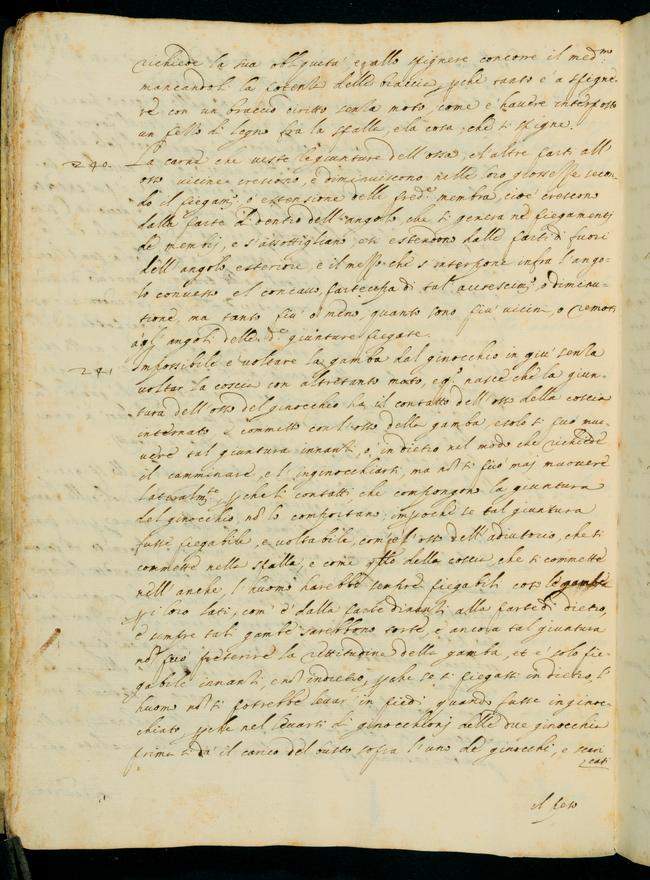 richiede la sua obliquetà, e q.llo spignere concorre il med.mo
mancandoli la potenza delle braccia, p.che tanto è a spigne-
re con un braccio diritto senza moto, come è havere interposto
un pezzo di legno fra la spalla, e la cosa, che si spigne.
240. La carne che veste le giunture dell'osso, et altre parti all'
osso vicine crescono, e diminuiscono nelle loro grossezze secon-
do il piegam.o, ò estensione delle pred.e membra, cioè crescono
dalla parte di dentro dell'angolo, che si genera ne piegamenti
de membri, e s'assottigliano, et estendono dalle parti di fuori
dell'angolo esteriore, e il mezzo che s'interpone infra l'ango-
lo convesso e'l concavo, participa di tal accrescim.o, ò diminu-
tione, ma tanto più ò meno, quanto sono più vicini, o remoti
agl'angoli delle d.e giunture piegate.
241. Impossibile è voltare la gamba dal ginocchio in giù senza
voltar la coscia con altretanto moto, e q.o nasce che la giun-
tura dell'osso del ginocchio ha il contatto dell'osso della coscia
internato e commesso con l'osso della gamba, e solo si può muo-
vere tal giuntura innanti, o, indietro nel modo che richiede
il camminare, e l'inginocchiarsi, ma nõ si può mai muovere
lateralm.te, p.che li contatti che compongono la giuntura
del ginocchio, nõ lo comportano, impoche se tal giuntura
fusse piegabile, e voltabile, come l'osso dell'adiutorio, che si
commette nella spalla, e come q.llo della coscia, che si commette
nell'anche, l'huomo harebbe sempre piegabili così le gambe
p. i loro lati, com'è dalla parte dinanti alla parte di dietro,
e sempre tali gambe sarebbono torte, e ancora tal giuntura
nõ può preterire la rettitudine della gamba, et è solo pie-
gabile innanti, e nõ indietro, p.che se si piegassi indietro, l'
huomo nõ si potrebbe levar in piedi quando fusse inginoc-
chiato, p.che nel levarsi di ginocchioni delle due ginocchia
prima si dà il carico del busto sopra l'uno de ginocchi, e scari
casi
il peso